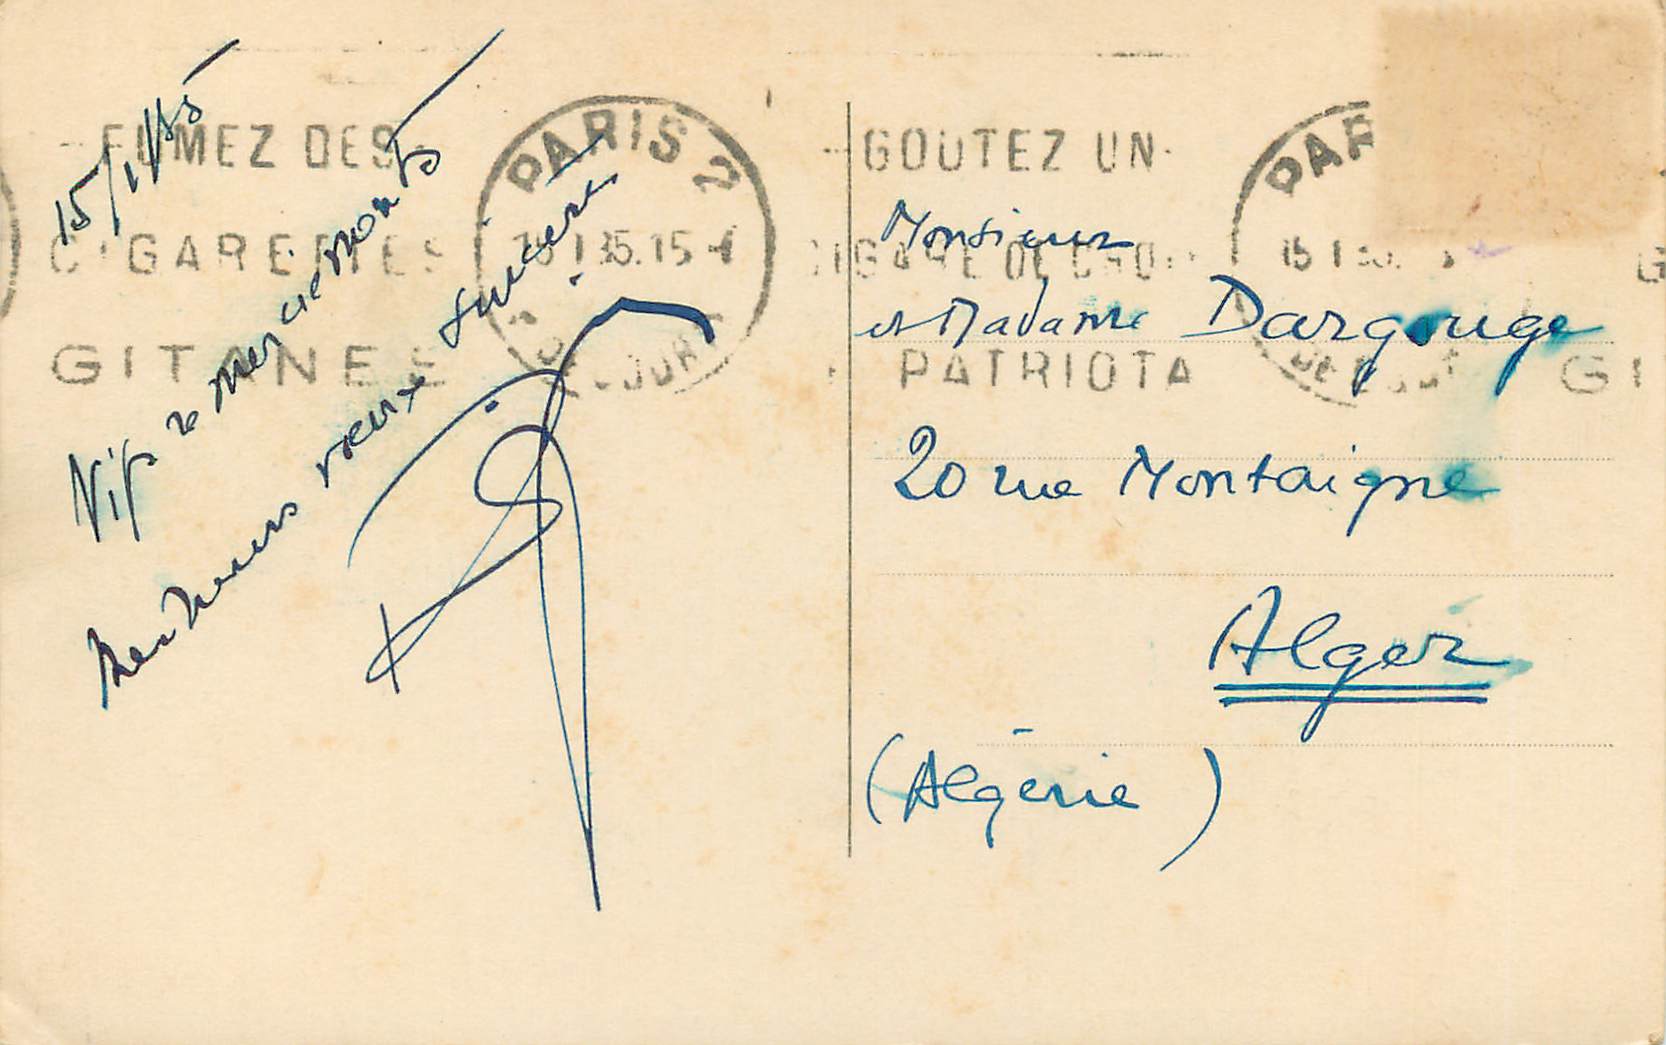 15/1/35
Vifs remerciements
Meilleurs vœux sincères
FUMEZ DES
CIGARETTES
GITANES
PARIS 2
15 1 35. 15
GOUTEZ UN
CIGARE DE
PATRIOTA
PAR
15 1
GI
Monsieur
et Madame Dargouge
20 rue Montaigne
Alger
(Algérie)